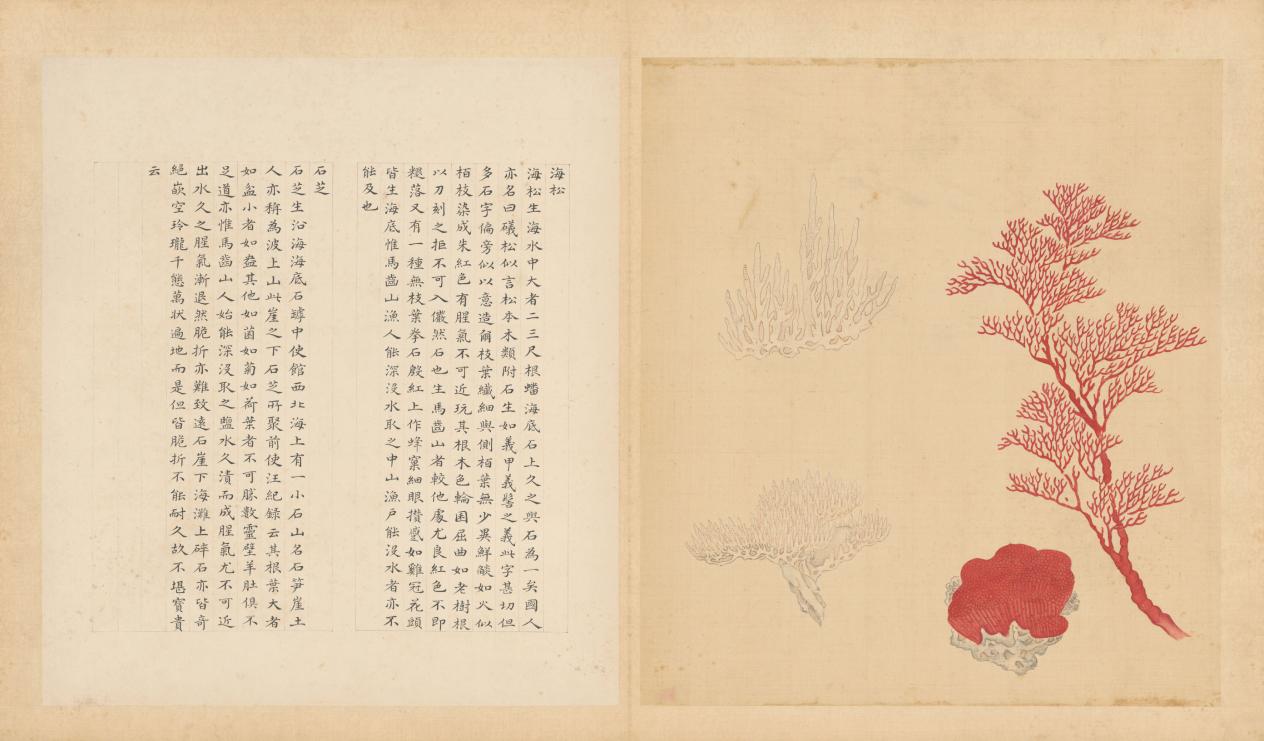 海松
海松生海水中大者二三尺根蟠海底石上久之與石為一矣國人
亦名曰礒松似言松本木類附石生如義甲義髻之義此字甚切但
多石字偏旁似以意造爾枝葉纖細與側栢葉無少異鮮燄如火似
栢枝染成朱紅色有腥氣不可近玩其根木色輪囷屈曲如老樹根
以刀刻之拒不可入儼然石也生馬齒山者較他處尤良紅色不即
褪落又有一種無枝葉拳石殷紅上作蜂窠細眼攢蹙如雞冠花頭
皆生海底惟馬齒山漁人能深沒水取之中山漁戶能沒水者亦不
能及也
石芝
石芝生沿海海底石罅中使館西北海上有一小石山名石笋崖土
人亦稱為波上山此崖之下石芝所聚前使汪紀錄云其根葉大者
如盆小者如盎其他如菌如菊如荷葉者不可勝數靈璧羊肚俱不
足道亦惟馬齒山人始能深沒取之鹽水久漬而成腥氣尤不可近
出水久之腥氣漸退然脆折亦難致遠石崖下海灘上碎石亦皆奇
絕嵌空玲瓏千態萬狀遍地而是但皆脆折不能耐久故不堪寶貴
云